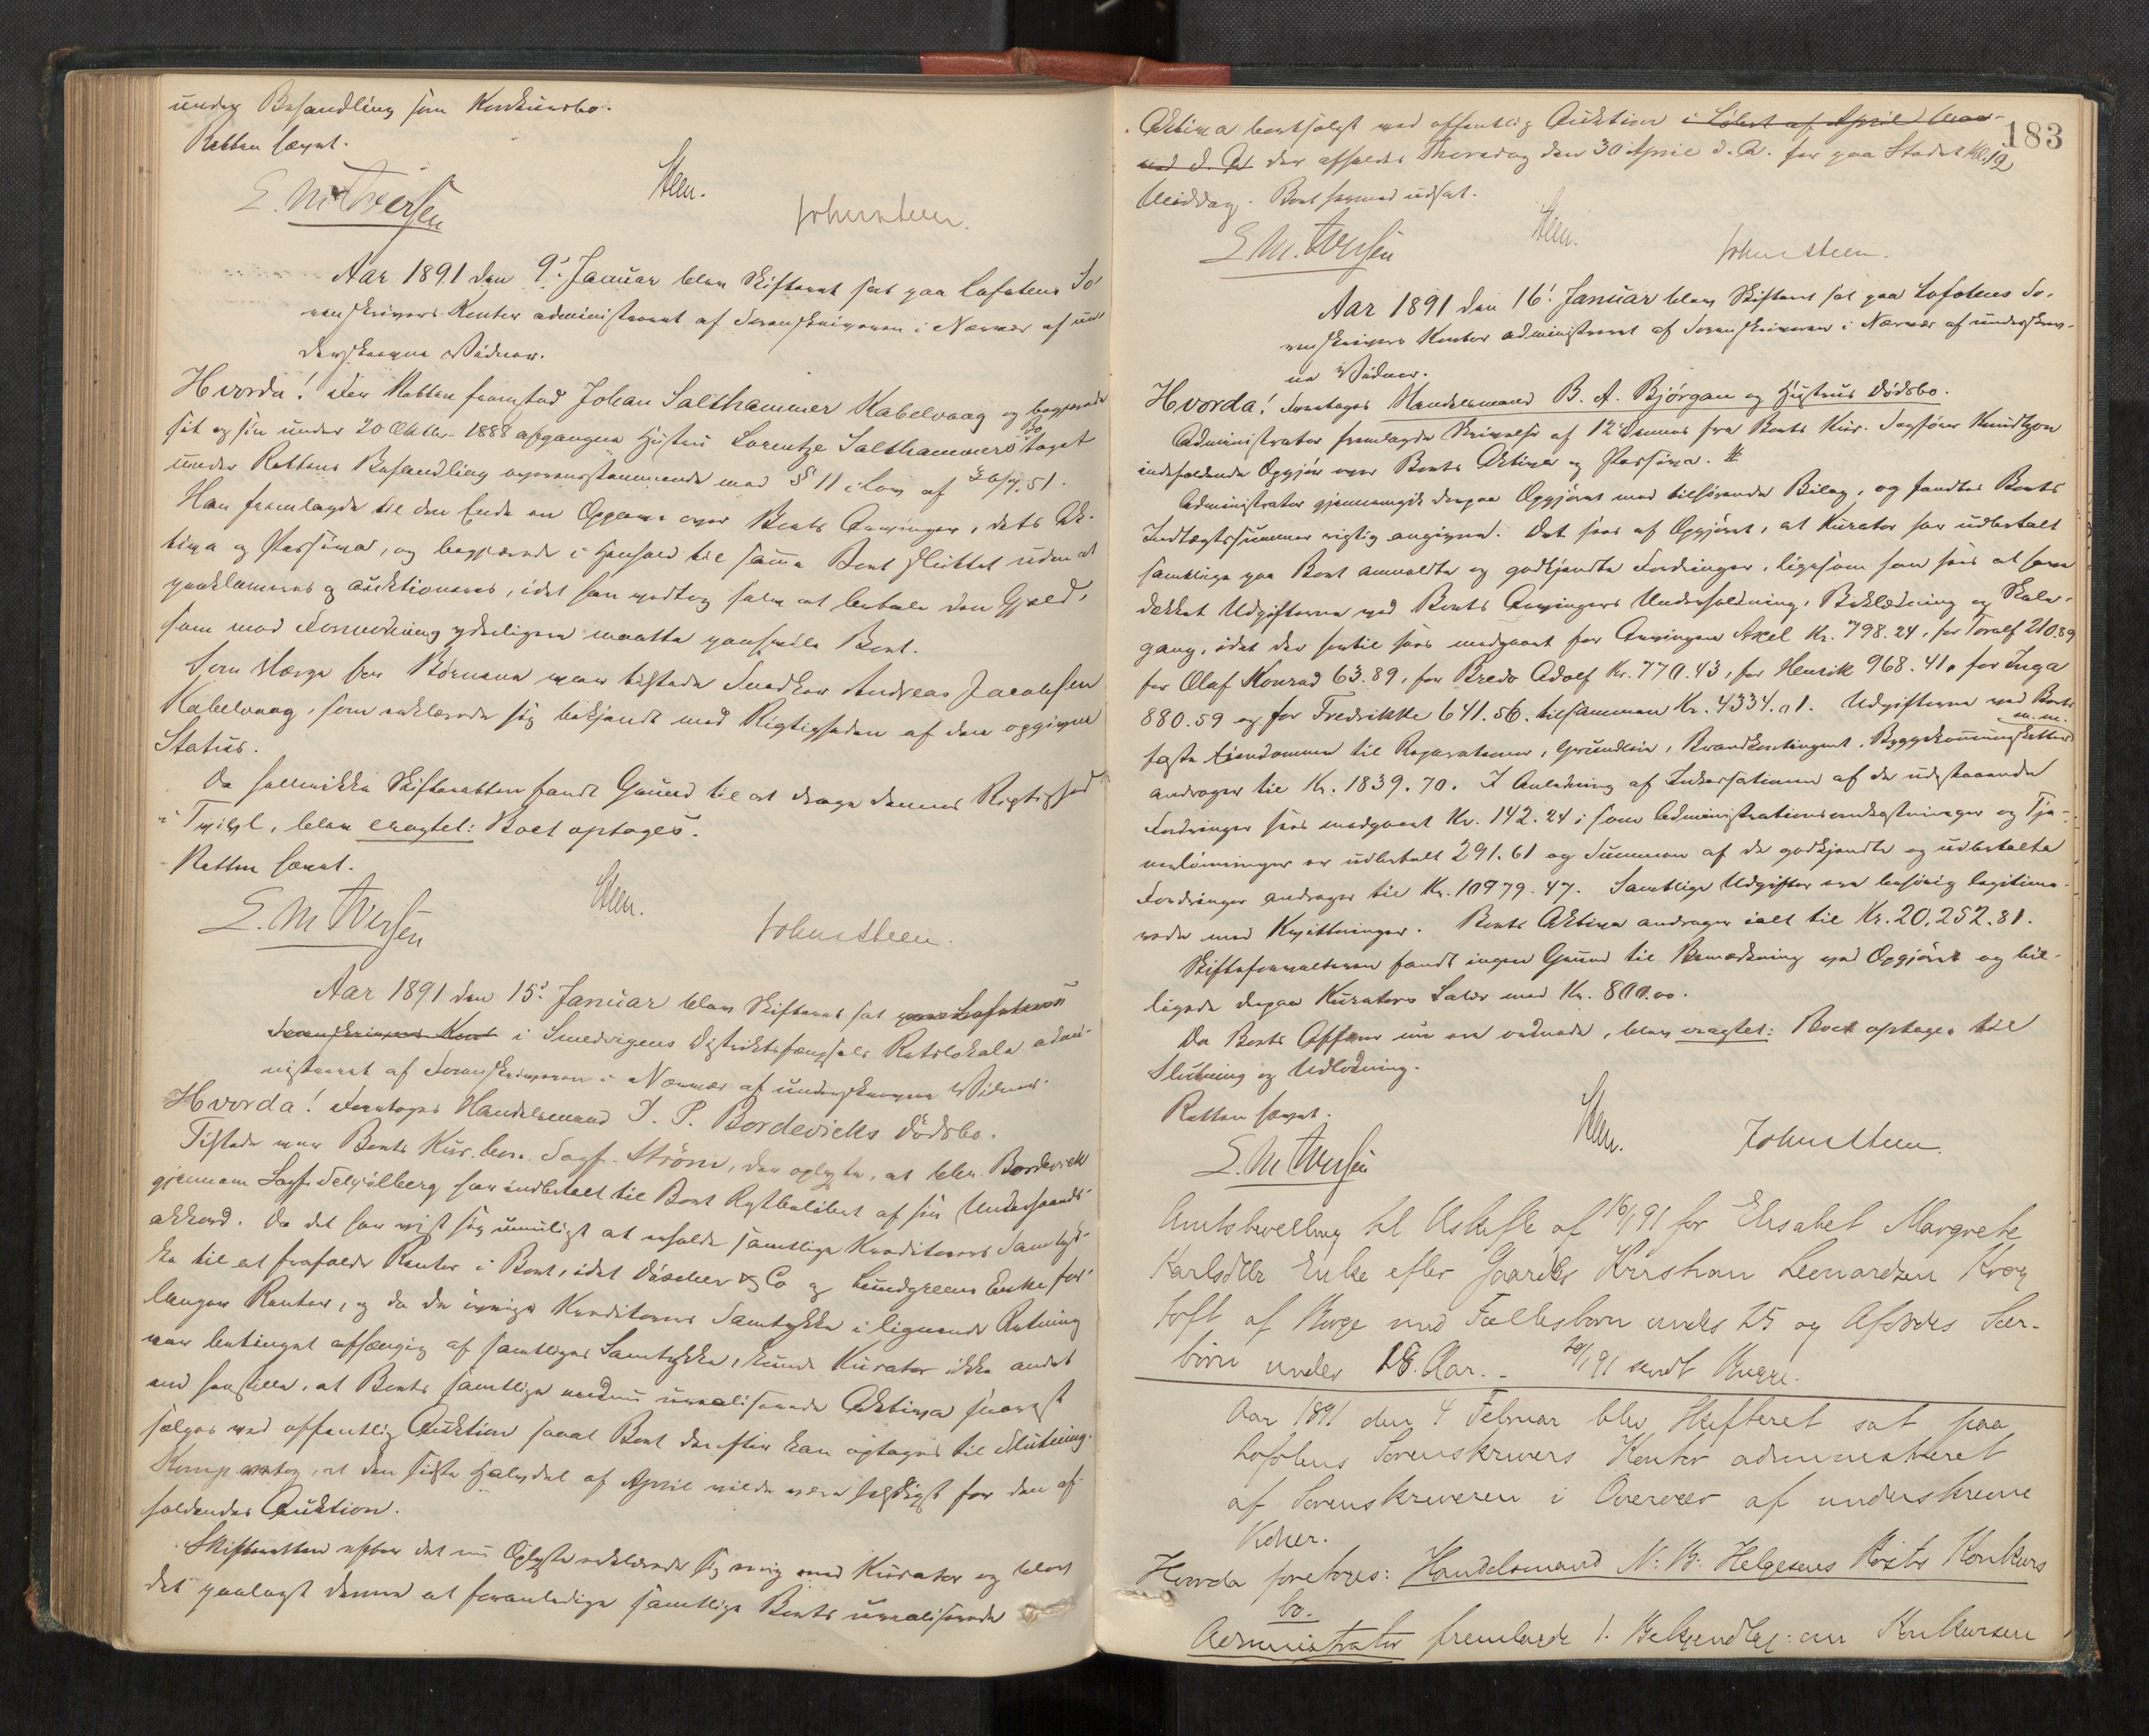 under Behandling som Konkursbo.
Retten hævet.
E. M. Iversen
Steen.
John Steen.
Aar 1891 den 9. Januar blev Skifteret sat paa Lofotens So-
renskrivers Kontor administreret af Sorenskriveren i Nærvær af un-
derskrevne Vidner.
Hvorda! For Retten fremstod Johan Salthammer Kabelvaag og begjærede
sit og sin under 20 Oktbr. 1888 afgangne Hustru Lorentze Salthammers Bo taget
under Rettens Behandling overensstemmende med § 11 i Lov af 30/7. 51.
Han fremlagde til den Ende en Opgave over Boets Arvinger, dets Ak-
tiva og Passiva, og begjærede i Henhold til samme Boet sluttet uden at
proklameres og auktioneres, idet han vedtog selv at betale den Gjæld,
som mod Formodning yderligere maatte paahvile Boet.
Som Værge for Børnene var tilstede Snedker Andreas Jacobsen
Kabelvaag, som erklærede sig bekjendt med Rigtigheden af den opgivne
Status.
Da hellerikke Skifteretten fandt Grund til at drage dennes Rigtighed
i Tvivl, blev eragtet: Boet optages.
Retten hævet.
E. M. Iversen
Steen.
John Steen.
Aar 1891 den 15. Januar blev Skifteret sat paa Lofotens
Sorenskrivers Kont i Smedvigens Distriktsfængsels Retslokale admi-
nistreret af Sorenskriveren i Nærvær af underskrevne Vidner.
Hvorda! Foretoges Handelsmand J. P. Bordevicks Dødsbo.
Tilstede var Boets Kur. const. Sagf. Strøm, der oplyste, at Bordevick
gjennem Sagf. har indbetalt til Boet Restbeløbet af sin Underhaands-
akkord. Da det har vist sig umuligt at erholde samtlige Kreditorers Samtyk-
ke til at frafalde Renter i Boet, idet Discher & Co og Lundgreens Enke for-
langer Renter, og da de øvrige Kreditorers Samtykke i lignende Retning
var betinget afhængig af samtliges Samtykke, kunde Kurator ikke andet
end henstille, at Boets samtlige endnu urealiserede Aktiva snarest
sælges ved offentlig Auktion saaat Boet derefter kan optages til Slutning.
Komp. antog, at den sidste Halvdel af April vilde være heldigst for den af-
holdendes Auktion.
Skifteretten efter det nu Oplyste erklærede sig enig med Kurator og blev
det paalagt denne at foranledige samtlige Boets urealiserede
183
Aktiva bortsolgt ved offentlig Auktion i Løbet af April Maa-
ned d. A. der afholdes Thorsdag den 30 April d. A. her paa Stedet Kl. 12
Middag. Boet hermed udsat.
E. M. Iversen
Steen.
John Steen.
Aar 1891 den 16. Januar blev Skifteret sat paa Lofotens So-
renskrivers Kontor administreret af Sorenskriveren i Nærvær af underskrev-
ne Vidner.
Hvorda! Foretoges Handelsmand B. A. Bjørgan og Hustrus Dødsbo.
Administrator fremlagde Skrivelse af 12 dennes fra Boets Kur. Sagfører Knudtzon
indeholdende Opgjør over Boets Aktiva og Passiva.
Administrator gjennemgik derpaa Opgjøret med tilhørende Bilag, og fandtes Boets
Indtægtssummer rigtig angivne. Det sees af Opgjøret, at Kurator har udbetalt
samtlige paa Boet anmeldte og godkjendte Fordringer, ligesom han sees at have
dækket Udgifterne ved Boets Arvingers Underholdning, Beklædning og Skole-
gang, idet der hertil sees medgaaet for Arvingen Axel Kr. 798.24, for Toralf 210.89
for Olaf Konrad 63.89, for Bredo Adolf Kr. 770.43, for Henrik 968.41, for Inga
880.59 og for Fredrikke 641.56. tilsammen Kr. 4334.01. Udgifterne ved Boets
faste Eiendomme til Reparationer, Grundleie, Brandkontingent, Bygge Kommuneskatter m.m.
andrager til Kr. 1839.70. I Anledning af Inkassationen af de udestaaende
Fordringer sees medgaaet Kr. 142.24; som Administrationsomkostninger og Tje-
nerlønninger er udbetalt 291.61 og Summen af de godkjendte og udbetalte
Fordringer andrager til Kr. 10979.47. Samtlige Udgifter ere behørig legitime-
rede med Kvitteringer. Boets Aktiva andrager ialt til Kr. 20.252.81.
Skifteforvalteren fandt ingen Grund til Bemærkning ved Opgjøret og bil-
ligede derpaa Kurators Salær med Kr. 800.00.
Da Boets Affærer nu ere ordnede, blev eragtet: Boet optages til
Slutning og Udlodning.
Retten hævet.
E. M. Iversen
Steen.
John Steen.
Amtsbevilling til Uskifte af 16/1 91 for Elisabet Margrete
Karlsdtr Enke efter Gaardbr Kristian Leonardsen Kræ
toft af Borge med Fællesbørn under 25 og Afdødes Sær-
børn under 18 Aar. - 20/1 91 sendt
Aar 1891 den 4 Februar blev Skifteret sat paa
Lofotens Sorenskrivers Kontor administreret
af Sorenskriveren i Overvær af underskrevne
Vidner.
Hvorda foretoges: Handelsmand N. B. Helgesens Røsts Konkurs
bo.
Administrator fremlagde 1. Bekjendtg. om Konkursen